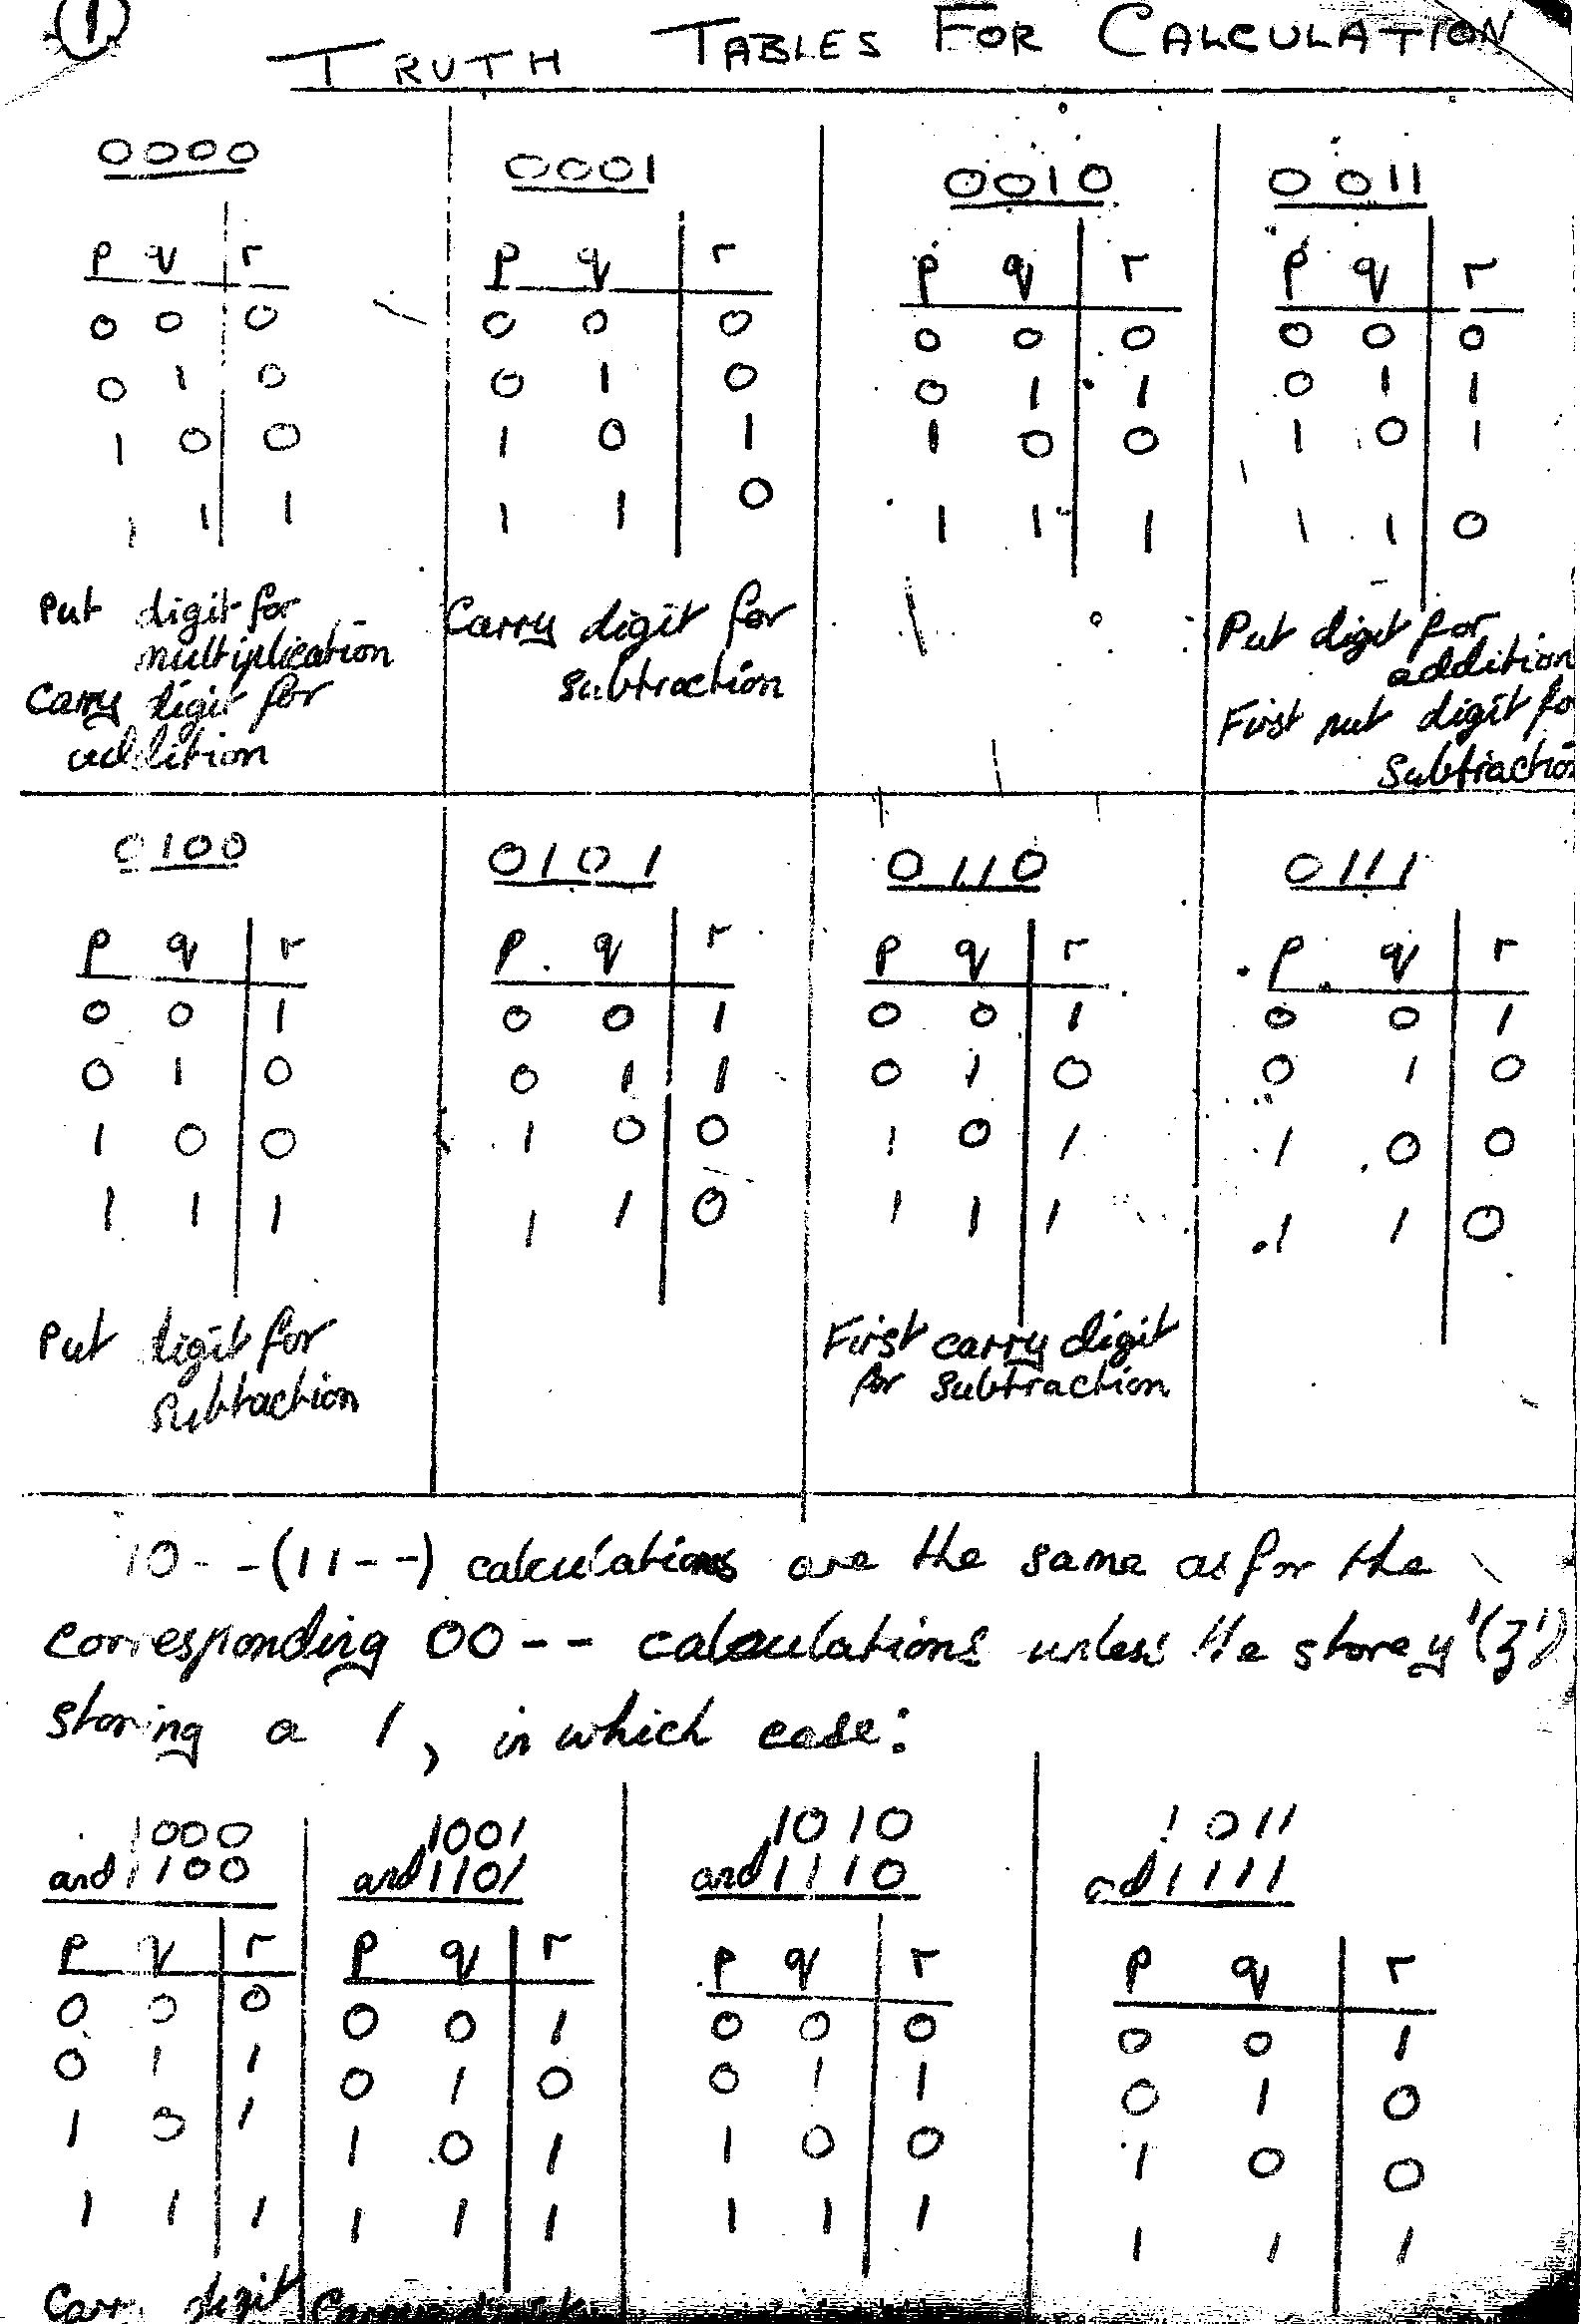 1
TRUTH TABLES FOR CALCULATION
0000
p q r
0 0 0
0 1 0
1 0 0
1 1 1
Put digit for
multiplication
Carry digit for
addition
0001
p q r
0 0 0
0 1 0
1 0 1
1 1 0
Carry digit for
subtraction
0010
p q r
0 0 0
0 1 1
1 0 0
1 1 1
0011
p q r
0 0 0
0 1 1
1 0 1
1 1 0
Put digit for
addition
First put digit fo
subtractio
0100
p q r
0 0 1
0 1 0
1 0 0
1 1 1
Put digit for
subtraction
0101
p q r
0 0 1
0 1 1
1 0 0
1 1 0
0110
p q r
0 0 1
0 1 0
1 0 1
1 1 1
First carry digit
for subtraction
0111
p q r
0 0 1
0 1 0
1 0 0
1 1 0
10--(11--) calculations are the same as for the
corresponding 00-- calculations unless the store y'(z')
storing a 1, in which case:
1000
and 1100
p q r
0 0 0
0 1 1
1 0 1
1 1 1
Carry digit
1001
and 1101
p q r
0 0 1
0 1 0
1 0 1
1 1 1
Carry digit
1010
and 1110
p q r
0 0 0
0 1 1
1 0 0
1 1 1
1011
and 1111
p q r
0 0 1
0 1 0
1 0 0
1 1 1